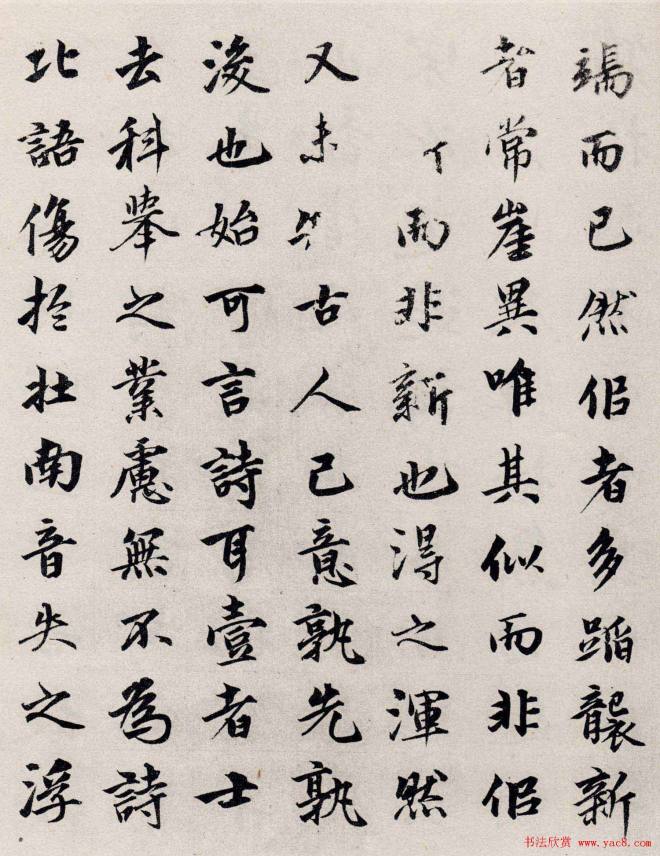 端而已然佀者多蹈襲新
者常崖異唯其似而非佀
而非新也得之渾然
又未古人已意孰先孰
後也始可言詩耳壹者士
去科舉之業慮無不為詩
北語傷於壯南音失之浮
书法欣赏 www.yac8.com